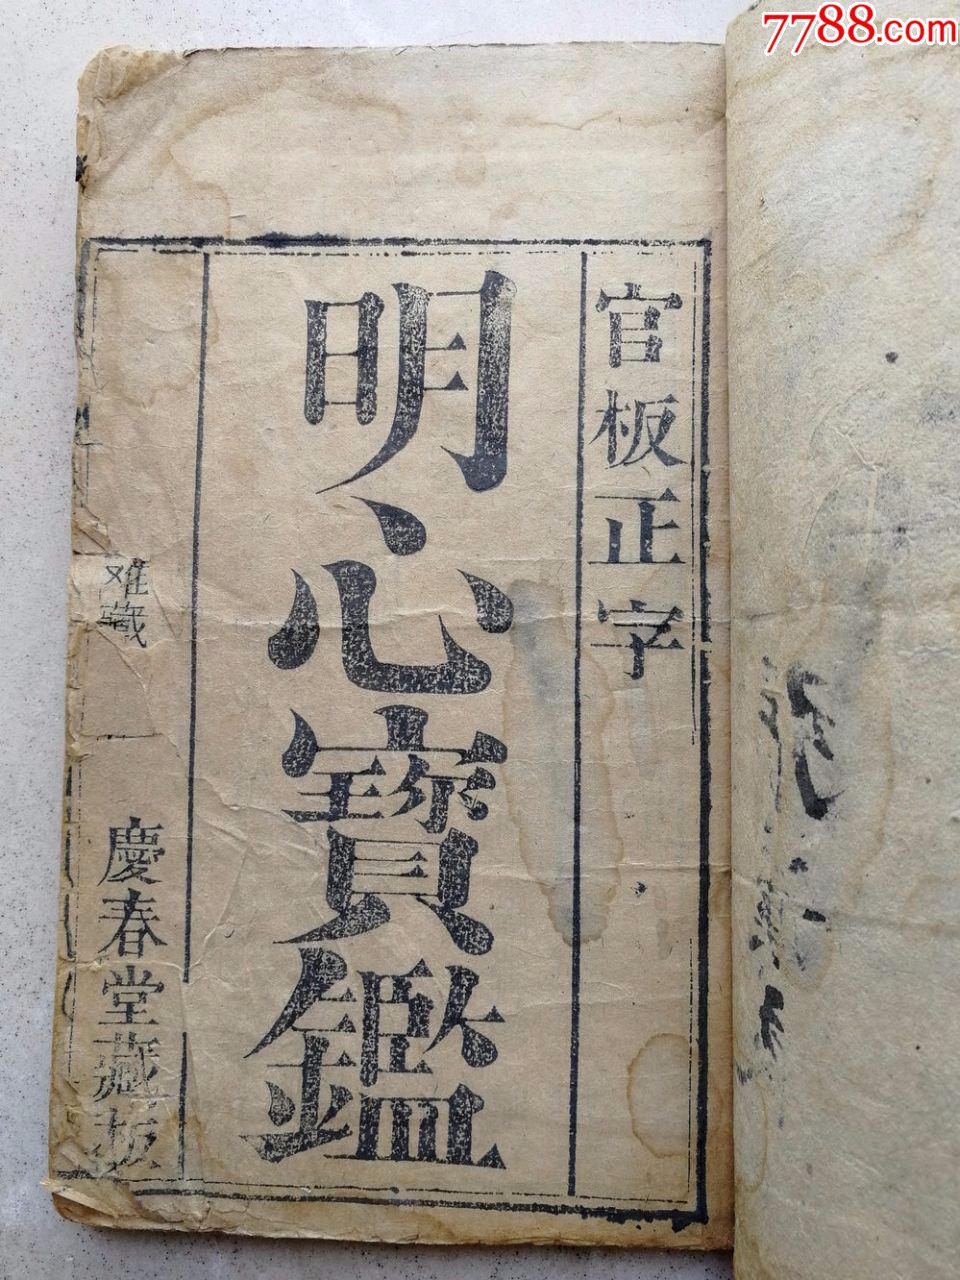 7788.com
官板正字
明心寶鑑
慶春堂藏板
难藏